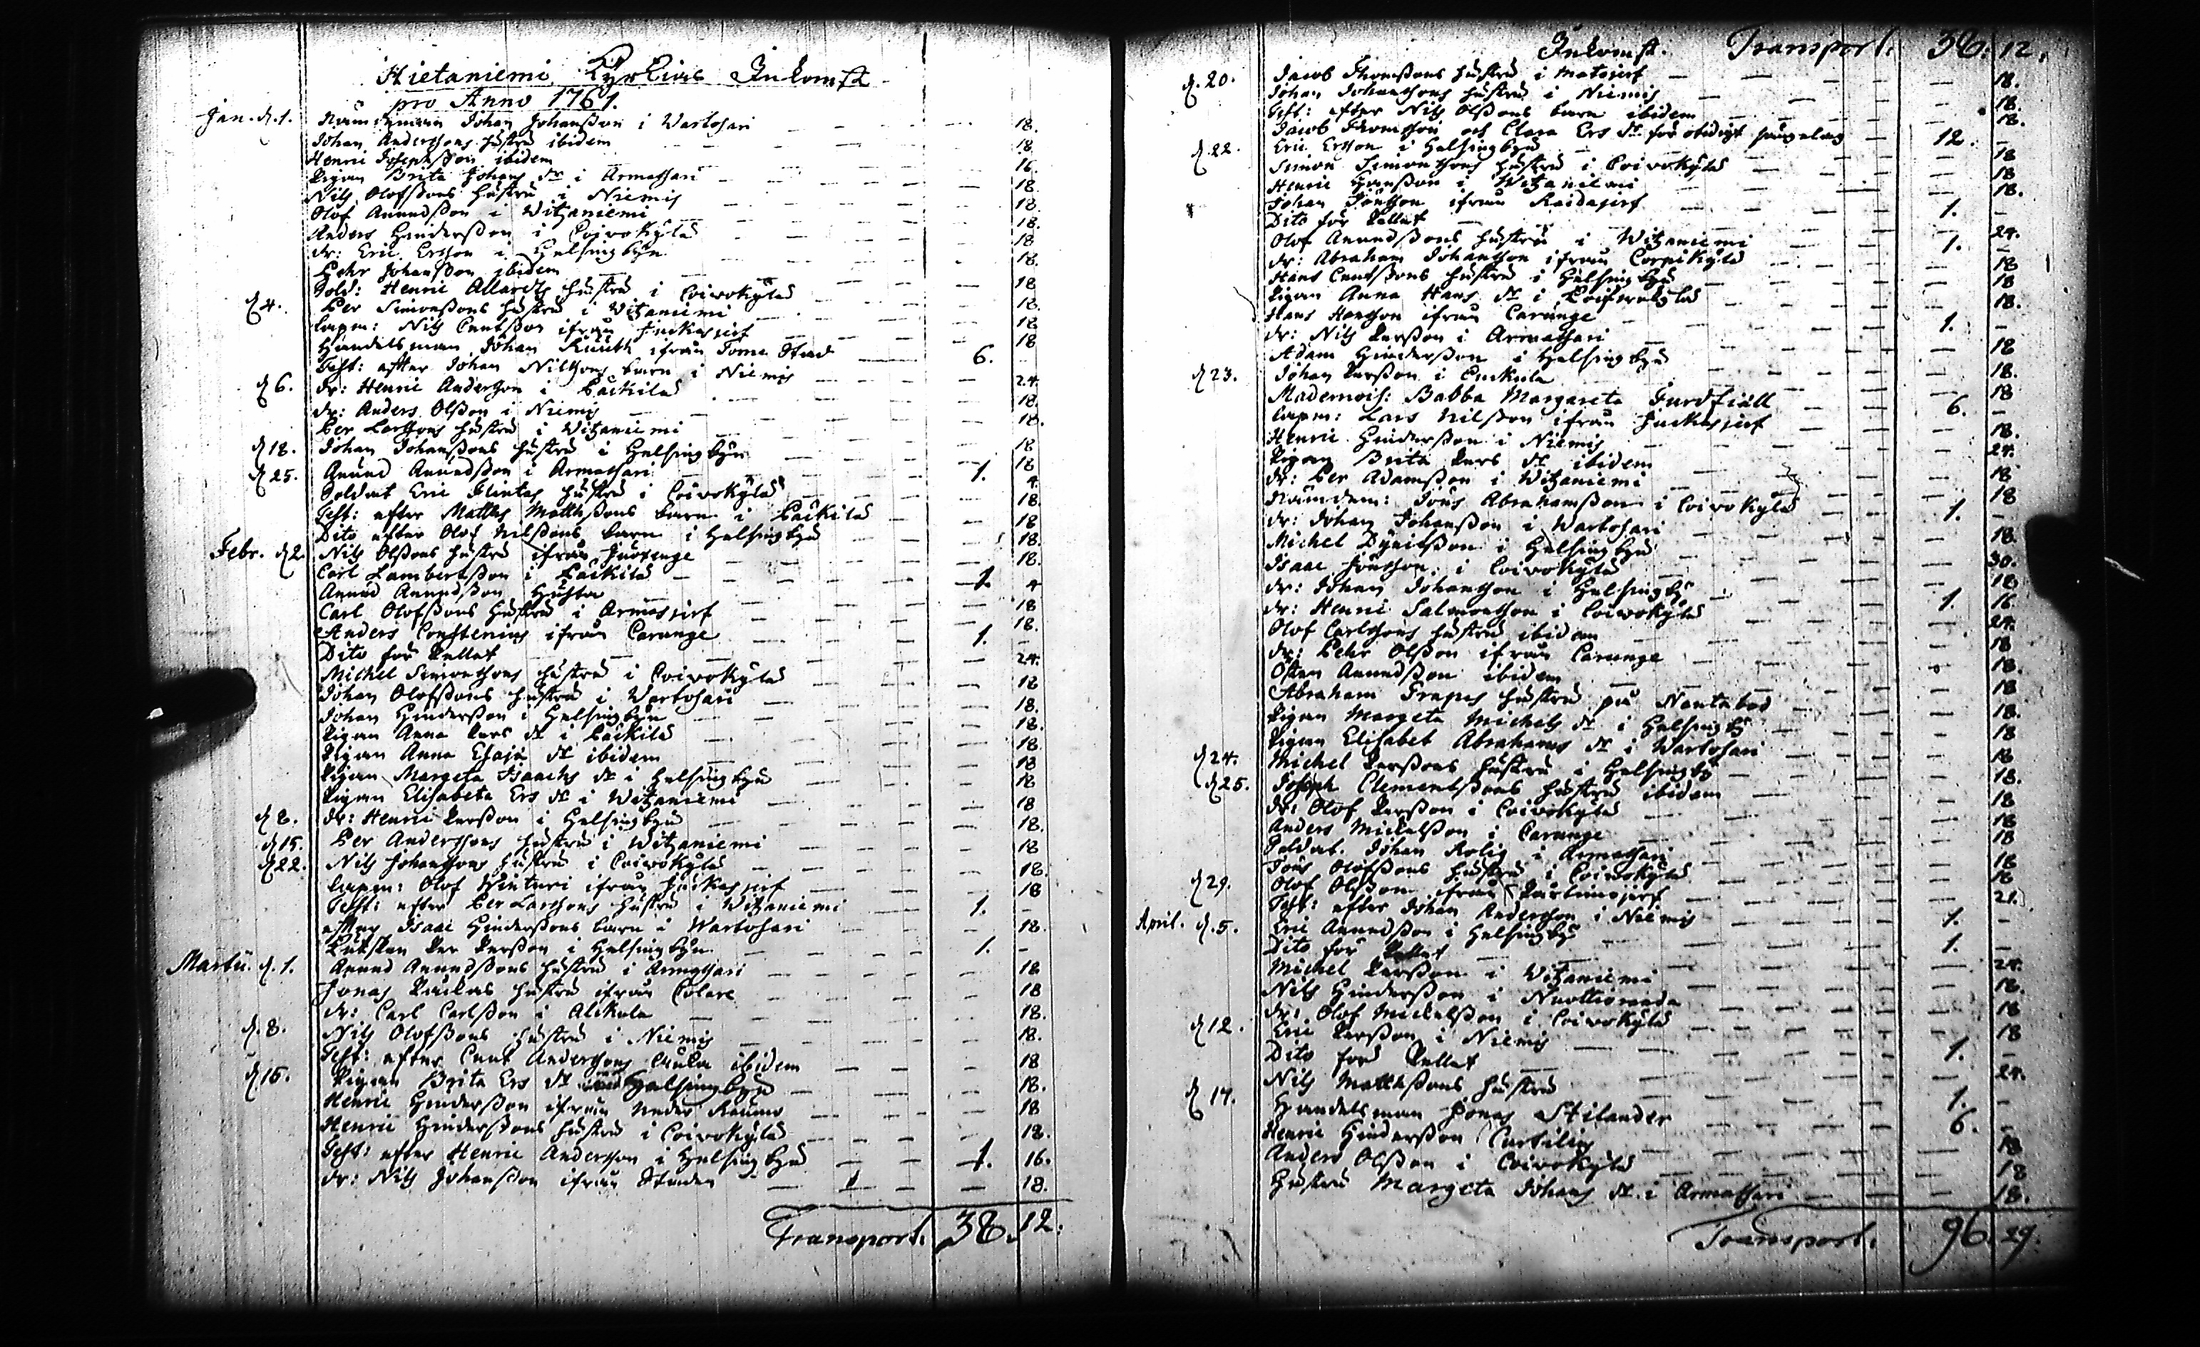 Hietaniemi Kyrkios Inkomst
pro Anno 1761.
Jan. d. 1. Nämdeman Johan Johansson i Wartosari 18.
Johan Anderssons hustru ibidem 18.
Henric Josephsson ibidem 16.
Pigan Brita Johans dr i Armassari 18.
Nils Olofssons hustru i Niemis 18.
Olof Anundsson i Witzaniemi 18.
Anders Hindersson i Coivokylä 18
dr: Eric Ersson i Helsingbyn 18.
Pehr Johansson ibidem
Sold: Henric Allards hustru i Coivokylä 18
d 4. Per Simonssons hustru i Witzaniemi 18.
Lapm: Nils Cnutsson ifrån Juckasjerf 18
Handelsman Johan Kuuth ifrån Torne Stad 6.
Test: efter Johan Nilssons barn i Niemis
d 6. dr: Henric Andersson i Päckilä 24.
dr: Anders Olsson i Niemis 18.
Per Larssons hustru i Witzaniemi 18.
d 18. Johan Johanssons hustru i Helsingbyn 18
d 25. Anund Anundsson i Armassari 1. 18
Soldat Eric Flintas hustru i Coivokylä 4.
Test: efter Matths Matthssons barn i Päckilä 18.
Dito efter Olof Nilssons barn i Helsingbyn 18
Febr. d 2. Nils Olssons hustru ifrån 18.
Carl Lambertsson i Päckilä 1. 18.
Anund Anundsson Husba 4
Carl Olofssons hustru i Armasjerf 18
Anders Constenius ifrån Carunge 1. 18.
Dito för Pallat 24.
Michel Simonssons hustru i Coivokylä 18
Johan Olofssons hustru i Wartosari 18.
Johan Hindersson i Helsingbyn 18.
Pigan Anna Pers dr i Päckilä 18
Pigan Anna Esaiæ dr ibidem 18
Pigan Margeta Isaachs dr i Helsingbyn 18
Pigan Elisabeta Ers dr i Witzaniemi 18
d 8. dr: Henric Persson i Helsingbyn 18.
d 15. Per Anderssons hustru i Witzaniemi 18
d 22. Nils Johanssons hustru i Coivokylä 18.
Lapm: Olof Winturi ifrån Juckasjerf 18
Test: efter Per Larssons hustru i Witzaniemi 1. -
efter Isaac Hinderssons barn i Wartosari 18.
Per Persson i Helsingbyn 1. -
Martii. d. 1. Anund Anundssons hustru i Armassari 18
Jonas hustru ifrån Colare 18
dr: Carl Carlsson i Alkula 18.
d. 8. Nils Olofssons hustru i Niemis 18.
Test: efter Cnut Anderssons ibidem 18
d 15. Pigan Brita Ers dr i Helsingbyn 18.
Henric Hindersson ifrån Neder 18
Henric Hinderssons hustru i Coivokylä 18.
Test: efter Henric Andersson i Helsingbyn 1. 16.
dr: Nils Johansson ifrån Staden 18.
Transport. 38. 12.
Inkomst. Transport. 38. 12.
d. 20. Jacob Thomssons hustru i Matojerf 18.
Johan Johanssons hustru i Niemis 18.
Test: efter Nils Olssons barn ibidem 18.
Jacob Thomsson och Clara Ers dr för otidigt 12. -
d 22. Eric Ersson i Helsingbyn 18
Simon Simonssons hustru i Coivokylä 18
Henric Hansson i Witzaniemi 18.
Johan Jönsson ifrån 1. -
Dito för Pallat 24.
Olof Anundssons hustru i Witzaniemi 1. -
dr: Abraham Johansson ifrån Corpikylä 18
Hans Cnutssons hustru i Helsingbyn 18
Pigan Anna Hans dr i Coivokylä 18.
Hans Hansson ifrån Carunge 1. -
dr: Nils Persson i Armassari 18
Adam Hindersson i Helsingbyn 18.
d 23. Johan Larsson i Cuckula 18
Mademois: Babba Margareta 6. -
Lapm: Lars Nilsson ifrån Juckasjerf 18.
Henric Hindersson i Niemis 24.
Pigan Brita Lars dr ibidem 18
dr: Per Adamsson i Witzaniemi 18
Nämdem: Jöns Abrahamsson i Coivokylä 1. -
dr: Johan Johansson i Wartosari 18.
Michel i Helsingbyn
Isaac Jönsson i Coivokylä 30.
dr: Johan Johansson i Helsingby 18.
dr: Henric Salmonsson i Coivokylä 1. 16.
Olof Carlssons hustru ibidem 24.
dr: Pehr Olsson ifrån Carunge 18
Östen Anundsson ibidem 18.
Abraham hustru på 18
Pigan Margeta Michels dr i Helsingby 18.
Pigan Elisabet Abrahams dr i Wartosari 18
d 24. Michel Perssons hustru i Helsingby 18
d 25. Joseph Clementssons hustru ibidem 18.
dr: Olof Persson i Coivokylä 18
Anders Mickelsson i Carunge 18
Soldat. Johan Rolig i Armassari 18
Jöns Olofssons hustru i Coivokylä 18
d 29. Olof Olsson ifrån 18
Test: efter Johan Andersson i Niemis 21.
April. d. 5. Eric Anundsson i Helsingbyn 1. -
Dito för Pallat 1. -
Michel Persson i Witzaniemi 24.
Nils Hindersson i 18.
dr: Olof Mickelsson i Coivokylä 18
d 12. Eric Persson i Niemis 18
Dito för Pallat 1. -
Nils Matthssons hustru 24.
d 14. Handelsman Jonas Stilander 1. -
Henric Hindersson 6. -
Anders Olsson i Coivokylä 18
Hustru Margeta Johans dr i Armassari 18.
Transport. 96. 29.